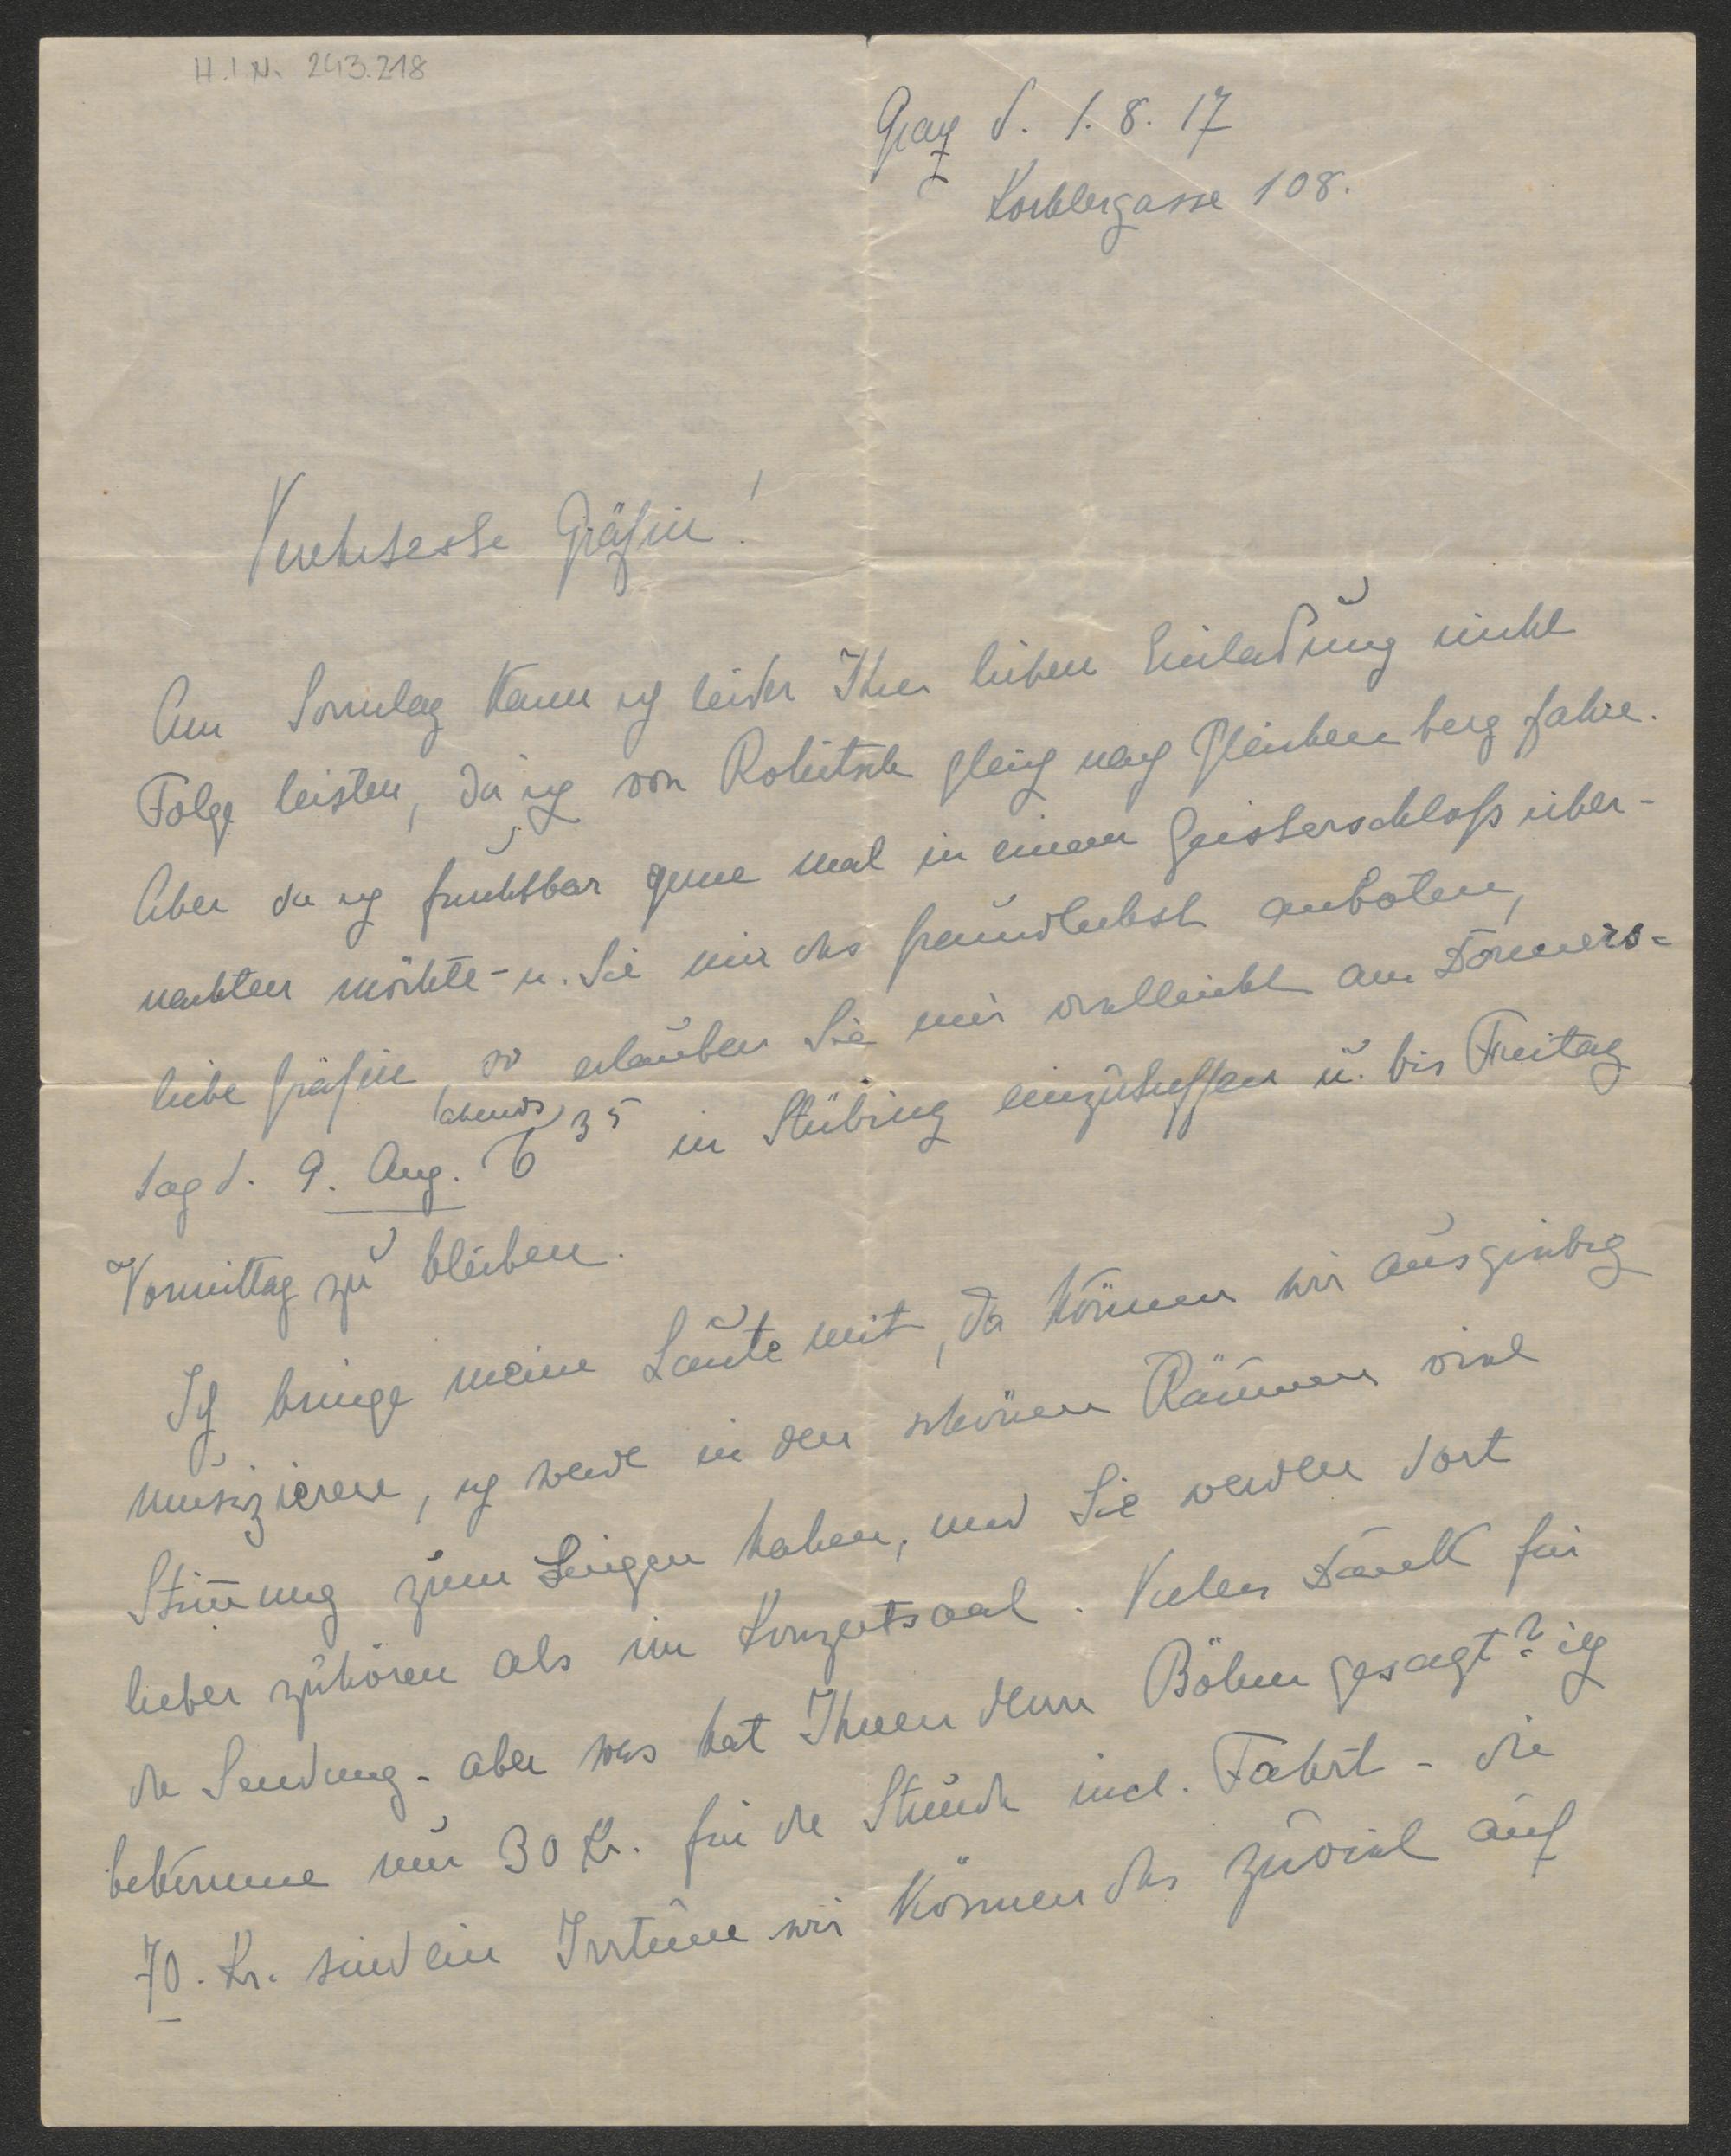 H.I.N. 243.218
Graz d. 1. 8. 17
Körblergasse 108.
Verehrteste Gräfin!
Am Sonntag kann ich leider Ihrer lieben Einladung nicht
Folge leisten, da ich von Rohitsch gleich nach Gleichenberg fahre.
Aber da ich furchtbar gerne mal in einem Geisterschloß über-
nachten möchte - u. Sie mir das freundlichst anboten,
liebe Gräfin, so erlauben Sie mir vielleicht am Donners=
tag d. 9. Aug. (abends) 6 35 in Stübing einzutreffen u. bis Freitag
Vormittag zu bleiben.
Ich bringe meine Laute mit, da können wir ausgiebig
musizieren, ich werde in den schönen Räumen viel
Stim̄ung zum Singen haben, und Sie werden dort
lieber zuhören als im Konzertsaal. Vielen Dank für
die Sendung - aber was hat Ihnen denn Böhm gesagt? ich
bekomme nur 30 Kr. für die Stunde incl. Fahrt - die
70. Kr. sind ein Irrtum wir können das zuviel auf